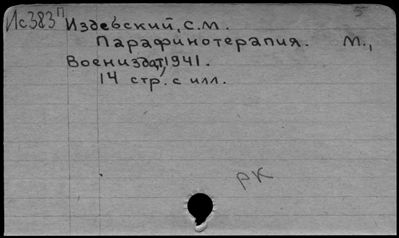 Ис383 П Издевский, С.М.
Парафинотерапия. М.,
Воениздат, 1941.
14 стр. с илл.
РК